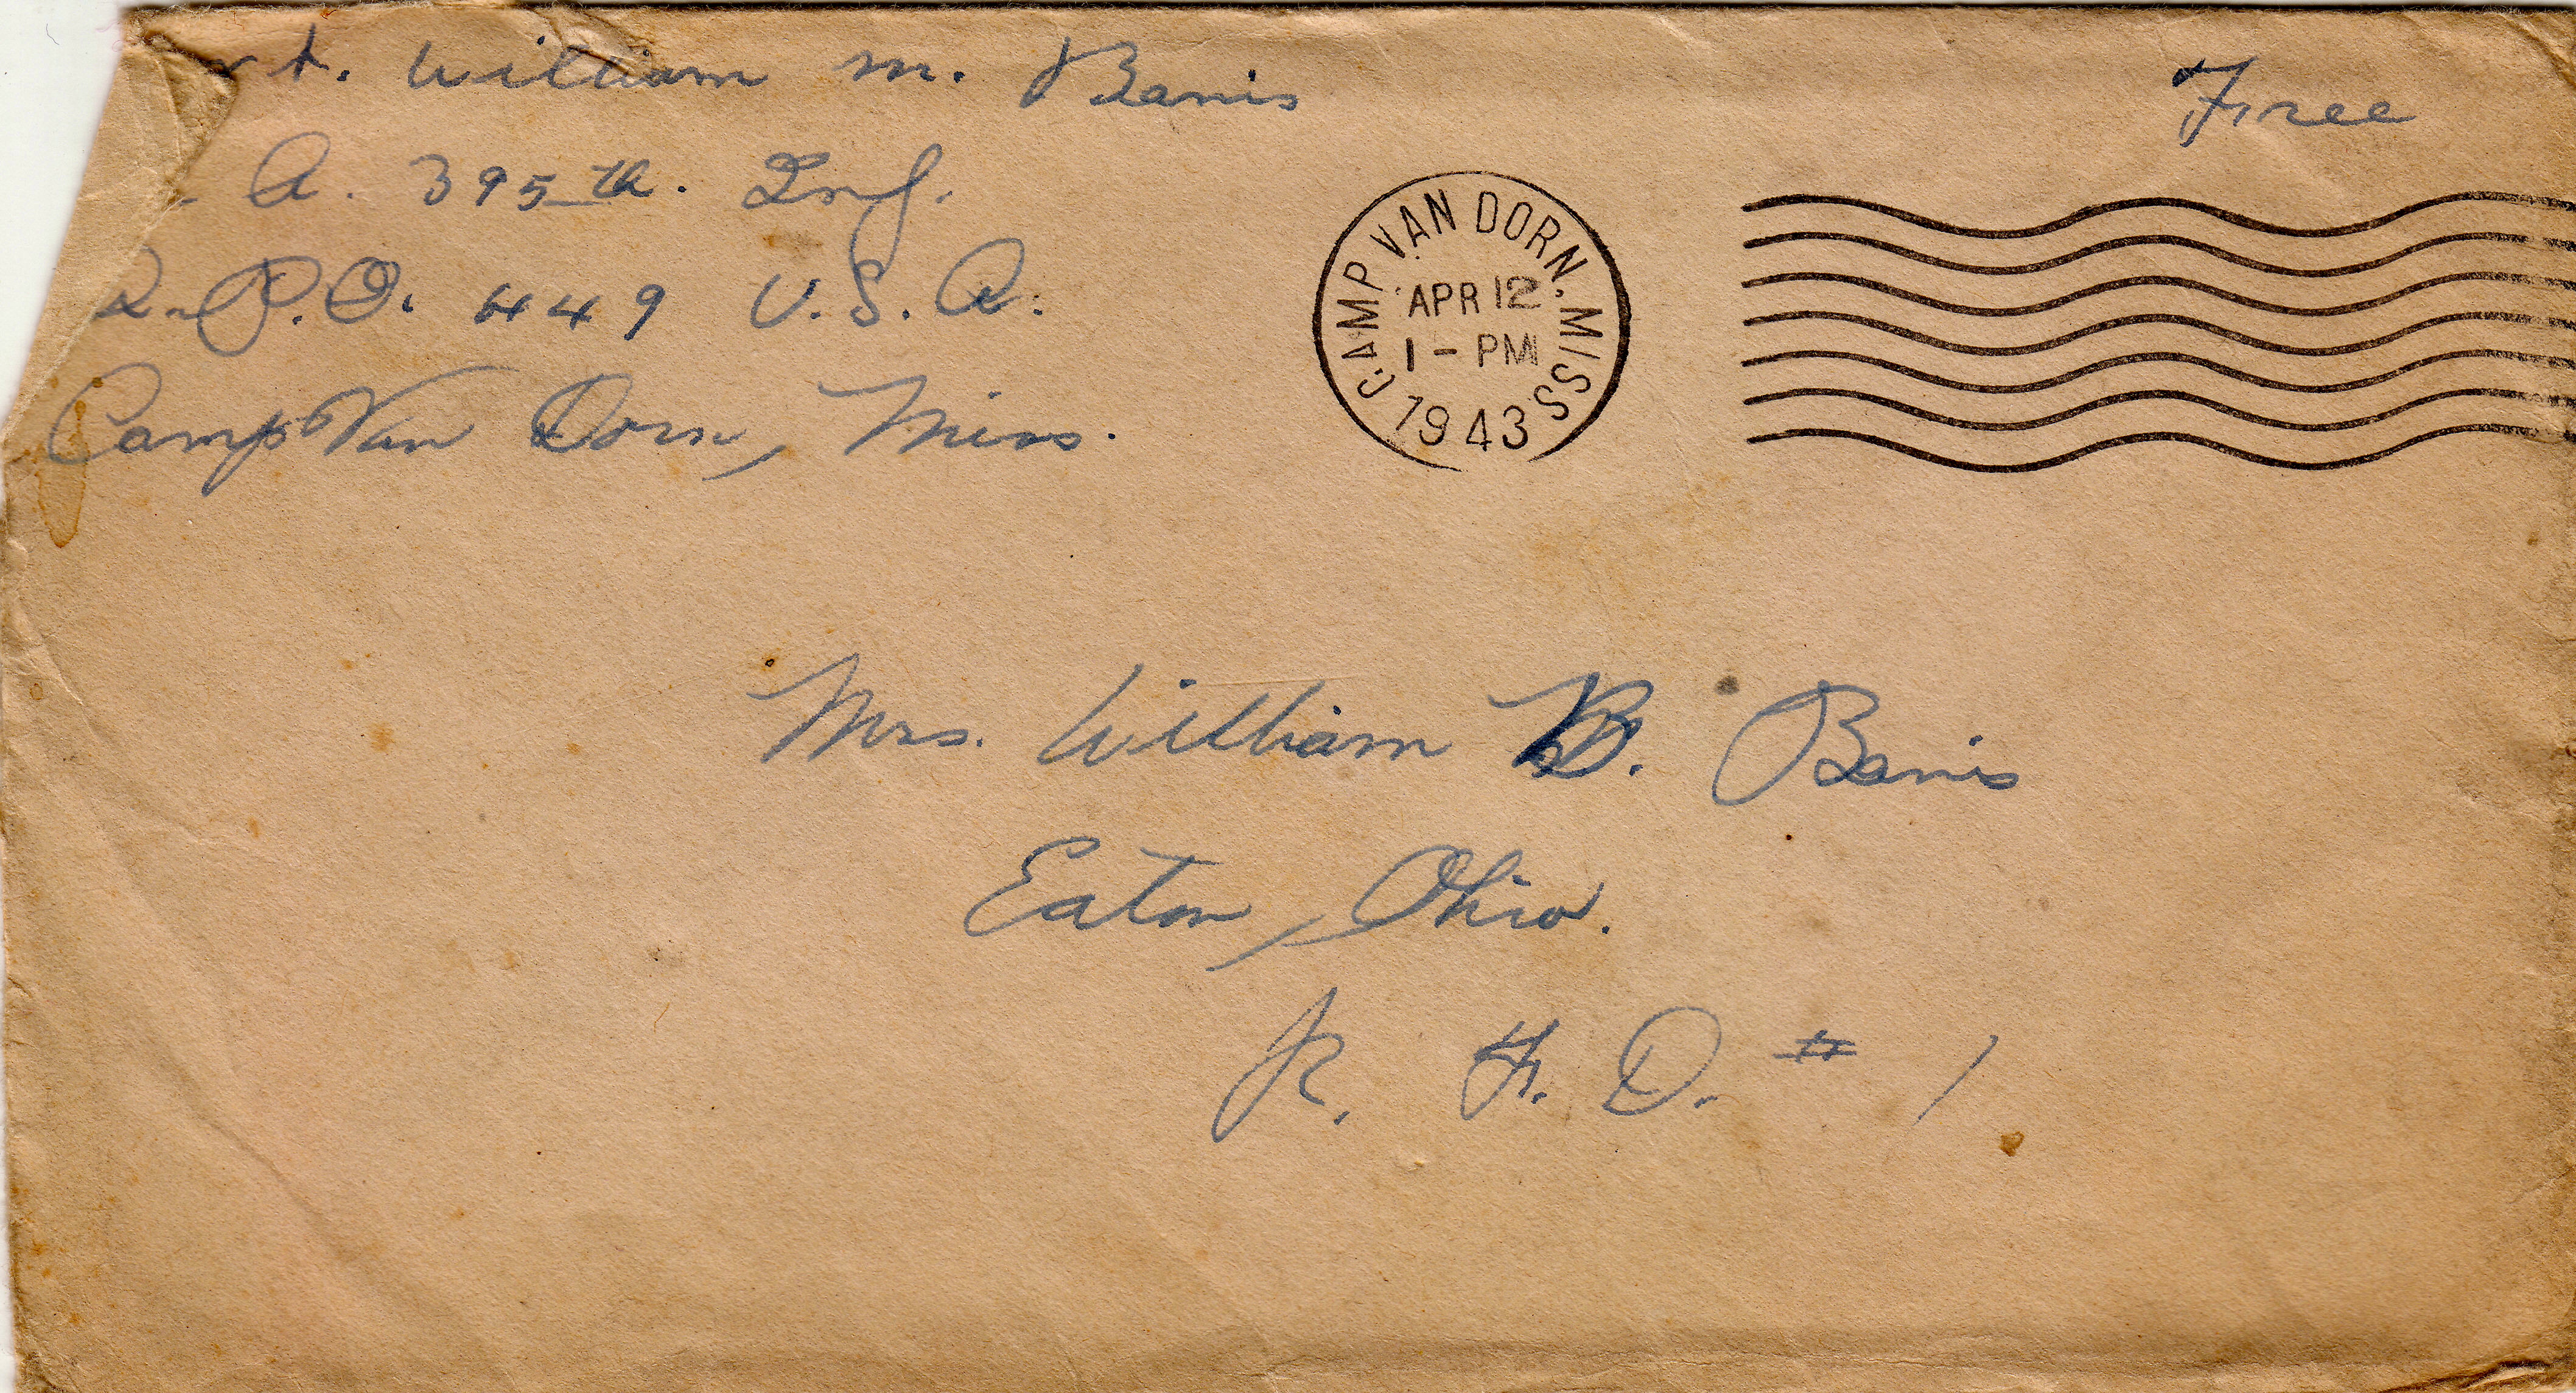 vt. William M. Banis
. A. 395th. Inf.
A.P.O. 449 U.S.A.
Camp Van Dorn, Miss.
Free
CAMP VAN DORN, MISS.
APR 12
1 - PM
1943
Mrs. William B. Banis
Eaton, Ohio.
R. F. D. # 1